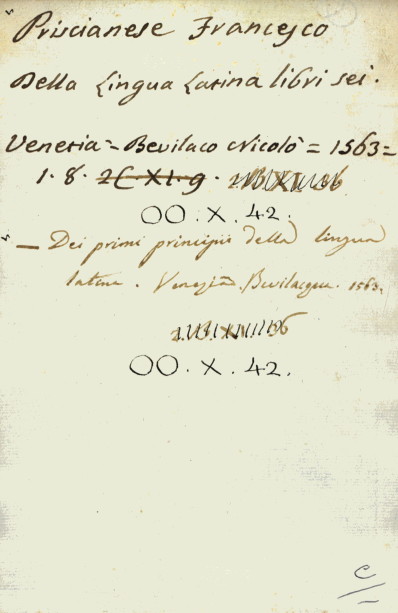 Priscianese Francesco
Della Lingua Latina libri sei.
Venetia = Bevilaco Nicolò = 1563 =
1. 8. 2C. XI. 9.
OO. X. 42.
— Dei primi principii della lingua
latina. Venezia. Bevilacqua. 1563.
OO. X. 42.
C